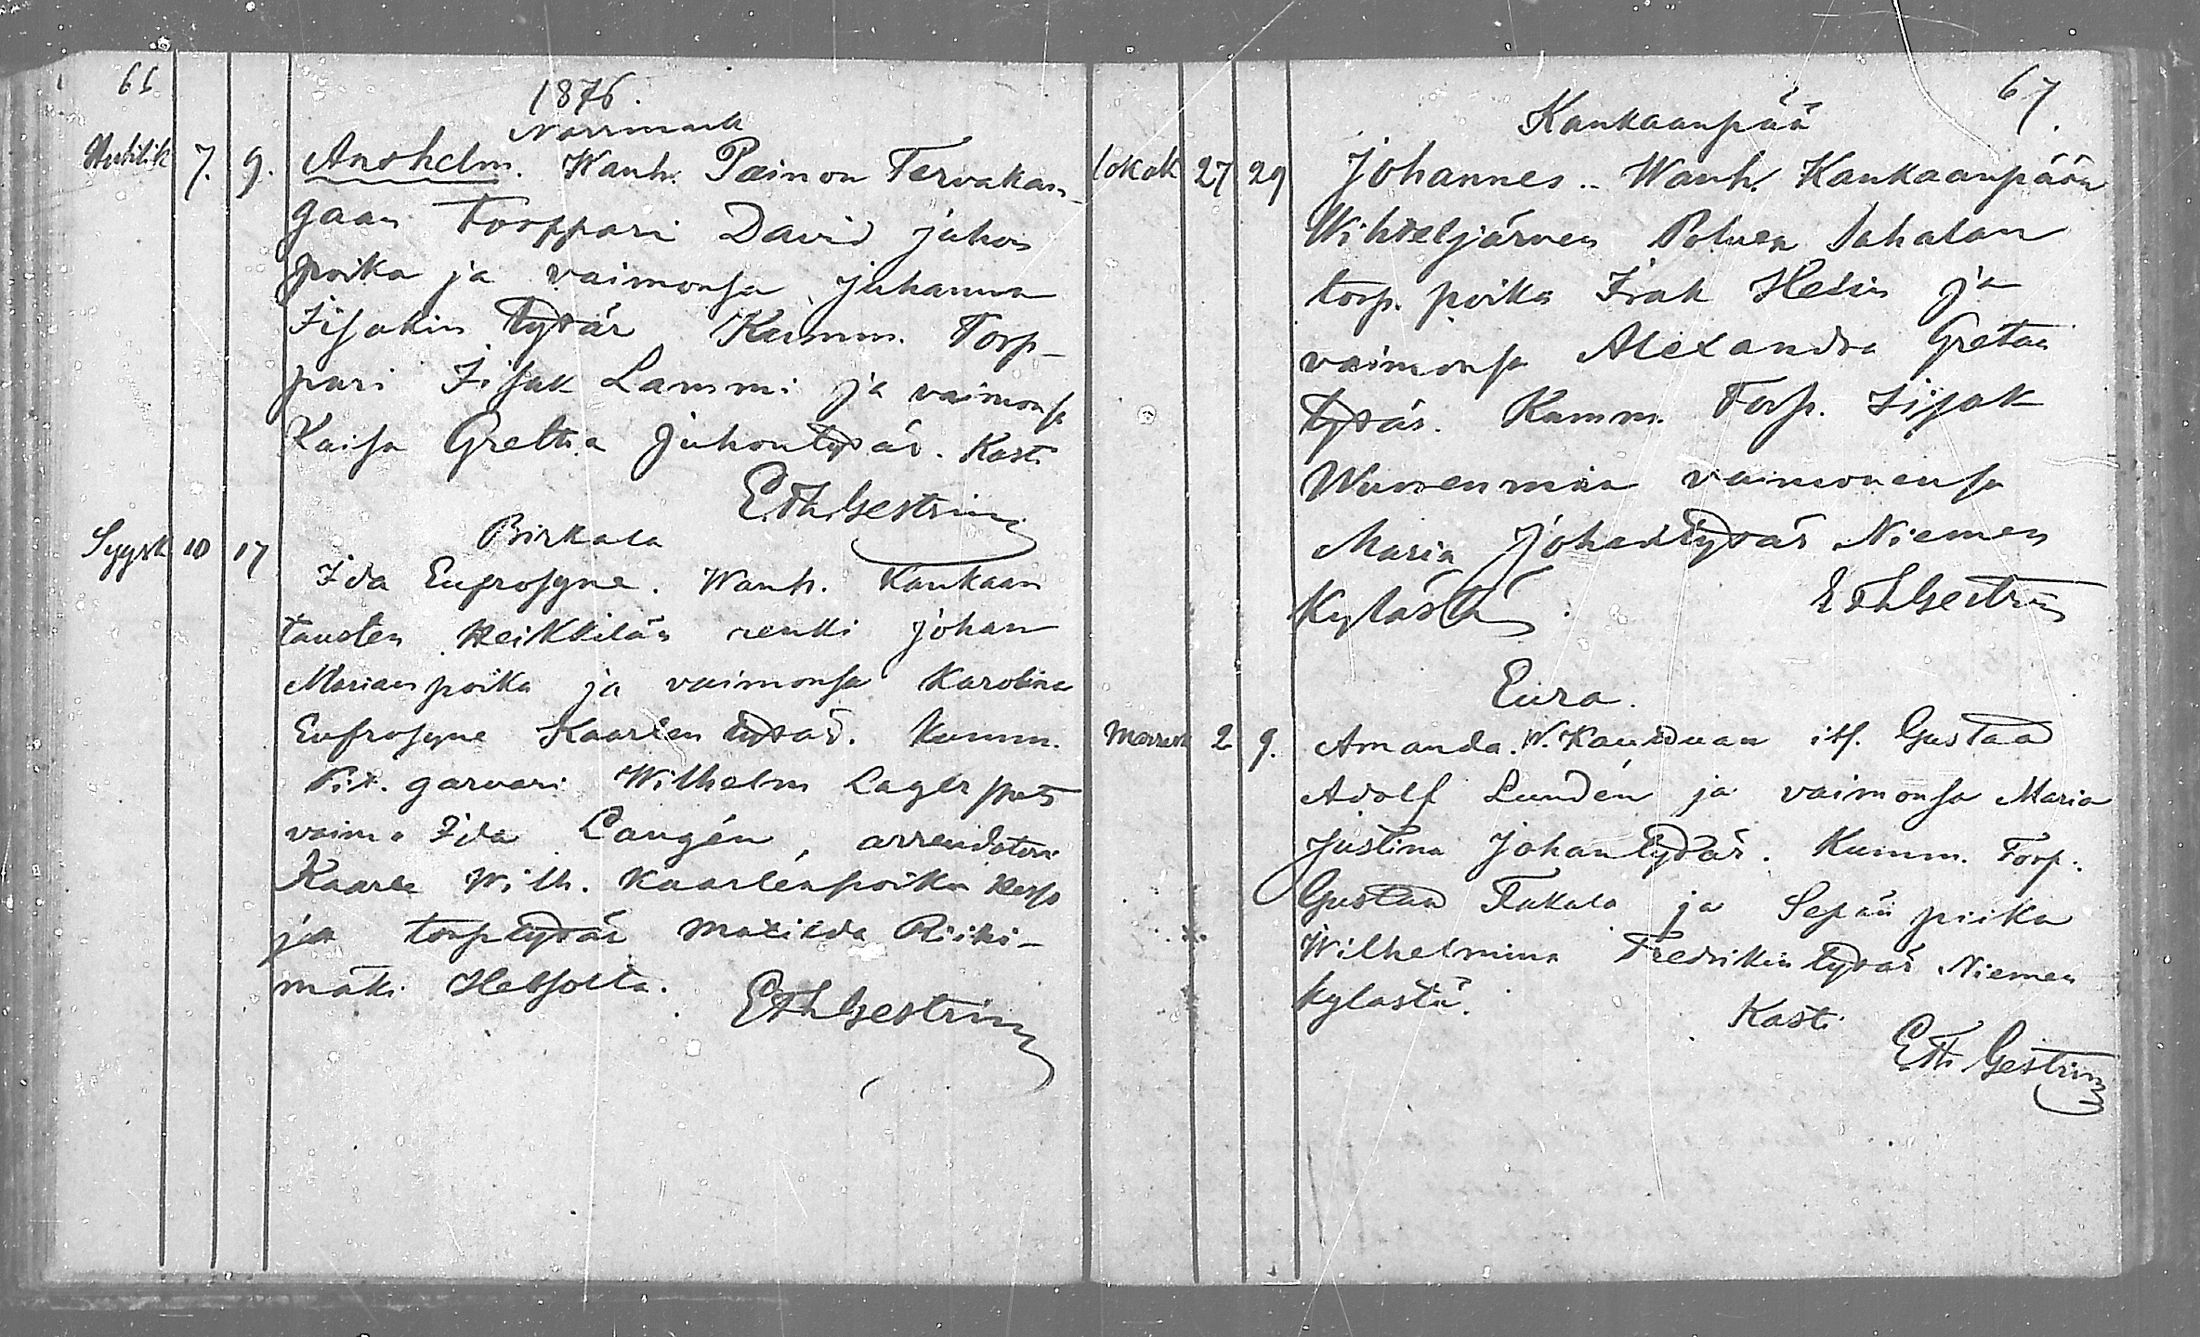 66
1876.
Norrmark
Huhtik 7. 9. Anshelm. Wanh. Poimon Tervakan-
gaan torppari David Juhon
poika ja vaimonsa Juhanna
Iisakin tytär Kumm. Torp-
pari Iisak Lammi ja vaimonsa
Kaisa Greta Juhontytär. Kasti
E.Th.Gestrin
Birkala
Syysk 10 17 Ida Eufrosyne. Wanh. Kankaan
tausten Heikkilän renki Johan
Marianpoika ja vaimonsa Karolina
Eufrosyne Kaarlen tytär. Kumm.
garvari Wilhelm Lager
vaimo Ida Langén, arrendatori
Kaarle Wilh. Kaarlenpoika
ja torp tytär Matilda Riiki-
mäki
E Th Gestrin
67.
Kankaanpää
Lokak 27 29 Johannes. Wanh. Kankaanpään
Wihteljärven Sahalan
torp. poika Isak Helin ja
vaimonsa Alexandra Gretan
tytär. Kumm. Torp. Iisak
vaimonensa
Maria Johantytär Niemen
Kylästä. E Th Gestrin
Eura.
Marrask 2 9. Amanda. W. its. Gustaa
Adolf Lundén ja vaimonsa Maria
Justina Johantytär. Kumm. Torp.
Gustaa ja Sepän piika
Wilhelmina Fredrikin tytär Niemen
kylästä. Kasti
E Th Gestrin